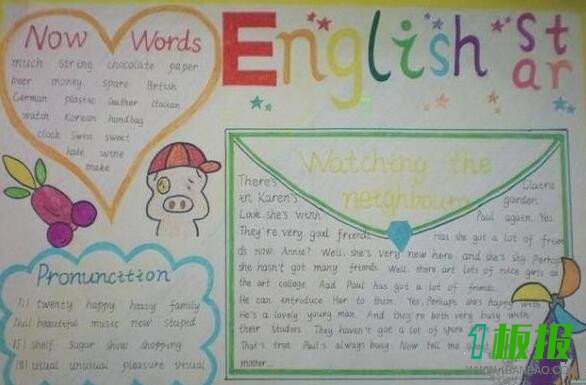 Now Words
much string chocolate paper
beer money spare British
German plastic leather Italian
watch Korean handbag
clock Swiss sweet
hate wine
make
English Star
Watching the
neighbours
There's Claire
in Karen's garden.
Look, she's with Paul again. Yes.
They're very good friends. Has she got a lot of frien
ds now, Annie? Well, she's very new here and she's shy. Perhaps
she hasn't got many friends. Well, there are lots of nice girls at
the art college. And Paul has got a lot of friends.
He can introduce Her to them. Yes, Perhaps she's happy with
He's a lovely young man. And they're both very busy with
their studies. They haven't got a lot of spare
That's true. Paul's always busy. Now tell me about
mother...
Pronunction
twenty happy heavy family
beautiful music new stupid
shelf sugar show shopping
usual unusual pleasure visual
1板报
WWW.1BANBAO.COM